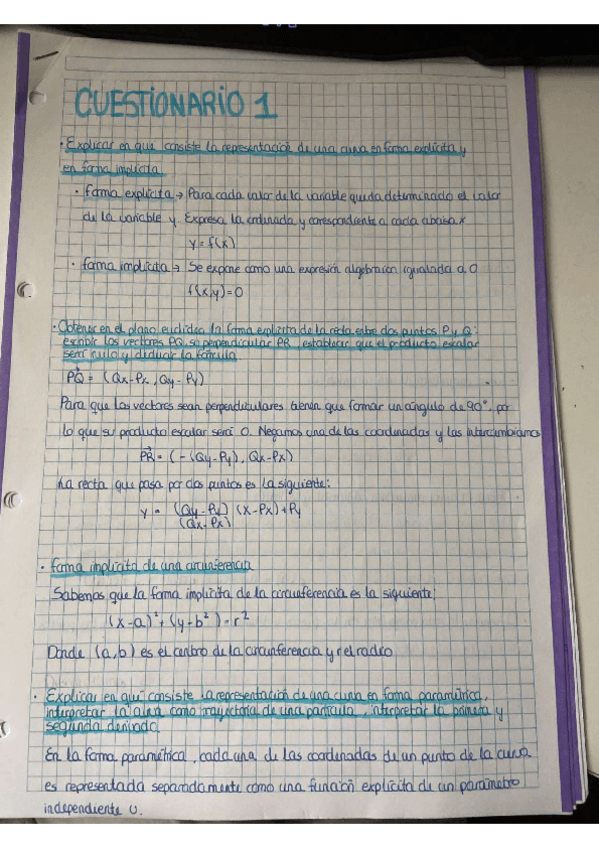 CUESTIONARIO 1
· Explicar en que consiste la representación de una curva en forma explícita y
en forma implícita
· forma explícita → Para cada valor de la variable queda determinado el valor
de la variable y. Expresa la ordinada y correspondiente a cada abcisa x
y = f(x)
· forma implícita → Se expone como una expresión algebraica igualada a 0
f(x,y)=0
· Obtener en el plano euclídeo la forma explícita de la recta entre dos puntos P y Q:
escribir los vectores PQ, su perpendicular PR, establecer que el producto escalar
será nulo y deducir la fórmula
PQ = (Qx-Px, Qy-Py)
Para que los vectores sean perpendiculares tienen que formar un ángulo de 90º, por
lo que su producto escalar será 0. Negamos una de las coordenadas y las intercambiamos
PR = (-(Qy-Py), Qx-Px)
La recta que pasa por dos puntos es la siguiente:
y = (Qy-Py) (x-Px)+Py
(Qx-Px)
· forma implícita de una circunferencia
Sabemos que la forma implícita de la circunferencia es la siguiente:
(x-a)²+(y-b²)=r²
Donde (a,b) es el centro de la circunferencia y r el radio
· Explicar en qué consiste la representación de una curva en forma paramétrica,
interpretar la curva como trayectoria de una partícula, interpretar la primera y
segunda derivada
En la forma paramétrica, cada una de las coordenadas de un punto de la curva
es representada separadamente como una función explícita de un parámetro
independiente u.